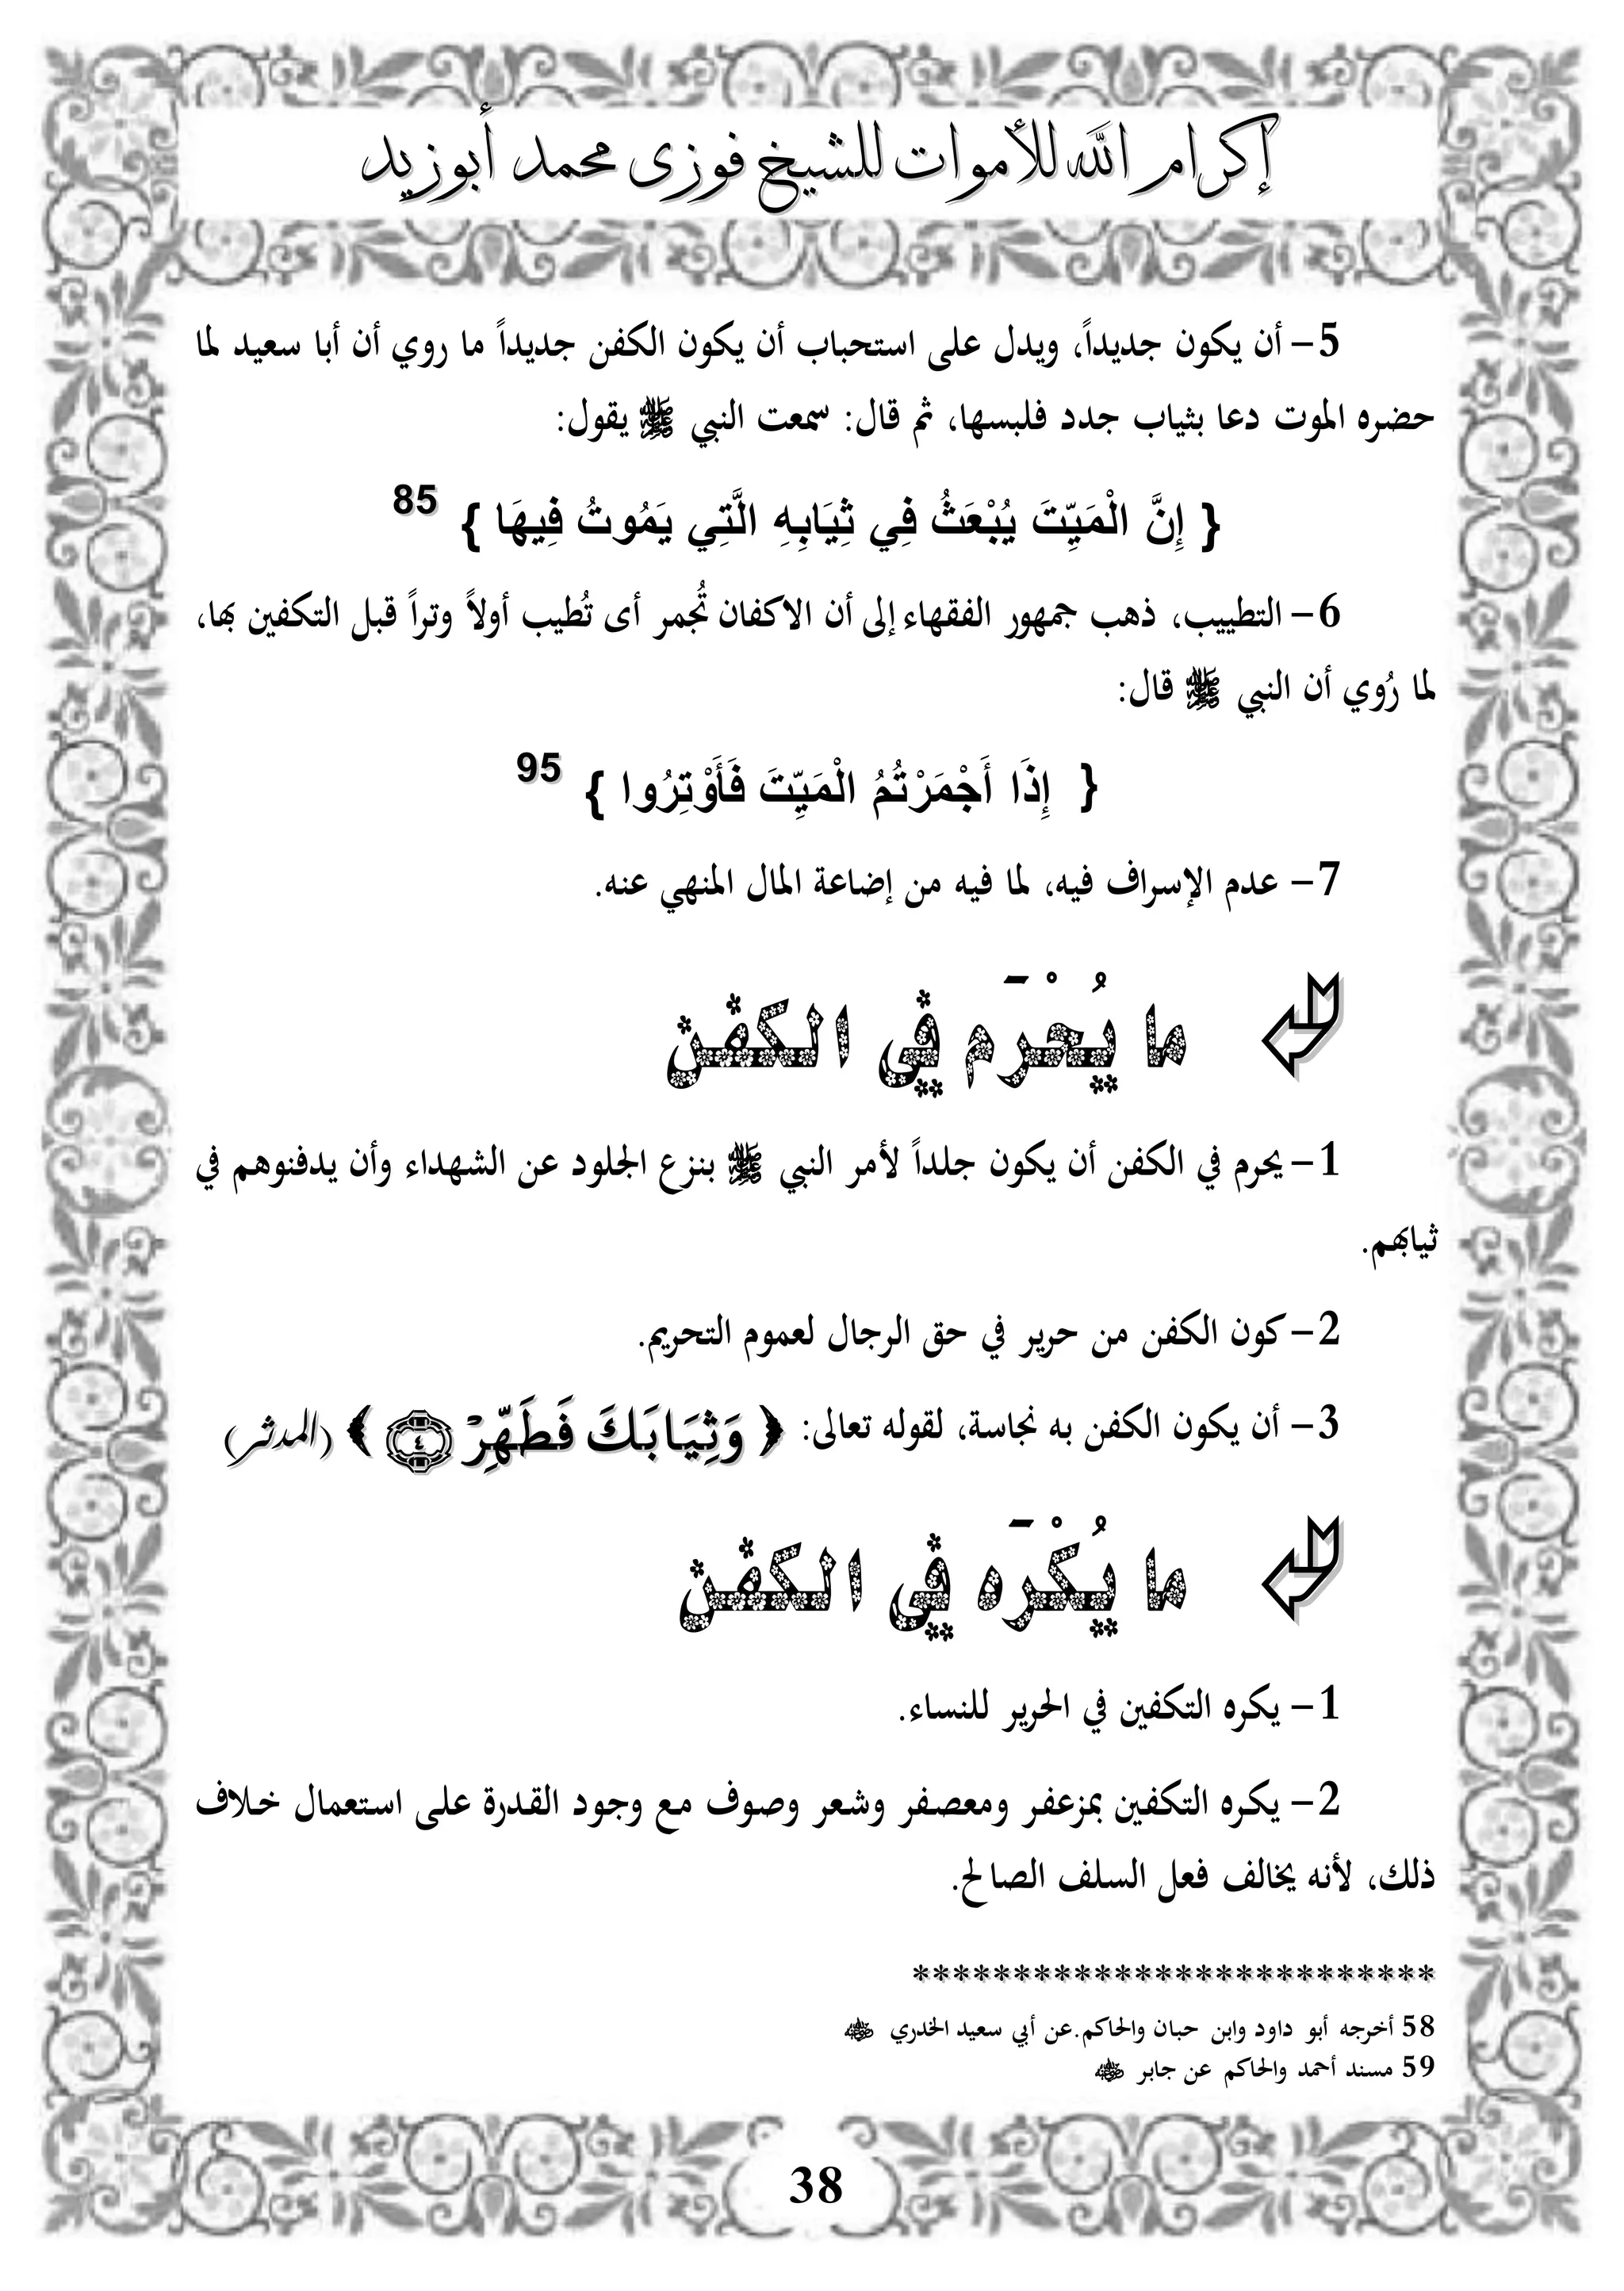 إكرام الله للأموات للشيخ فوزى محمد أبوزيد
5- أن يكون جديداً، ويدل على استحباب أن يكون الكفن جديداً ما روي أن أبا سعيد لما
حضره الموت دعا بثياب جدد فلبسها، ثم قال: سمعت النبي ﷺ يقول:
{ إِنَّ الْمَيِّتَ يُبْعَثُ فِي ثِيَابِهِ الَّتِي يَمُوتُ فِيهَا } 85
6- التطييب، ذهب جمهور الفقهاء إلى أن الاكفان تُجمر أى تُطيب أولاً وتراً قبل التكفين بها،
لما رُوي أن النبي ﷺ قال:
{ إِذَا أَجْمَرْتُمُ الْمَيِّتَ فَأَوْتِرُوا } 95
7- عدم الإسراف فيه، لما فيه من إضاعة المال المنهي عنه.
ما يُحْرَم في الكفن
1- يحرم في الكفن أن يكون جلداً لأمر النبي ﷺ بنزع الجلود عن الشهداء وأن يدفنوهم في
ثيابهم.
2- كون الكفن من حرير في حق الرجال لعموم التحريم.
3- أن يكون الكفن به نجاسة، لقوله تعالى: ﴿ وَثِيَابَكَ فَطَهِّرْ ٤ ﴾ (المدثر)
ما يُكْرَه في الكفن
1- يكره التكفين في الحرير للنساء.
2- يكره التكفين بمزعفر ومعصفر وشعر وصوف مع وجود القدرة على استعمال خلاف
ذلك، لأنه يخالف فعل السلف الصالح.
**************************
58 أخرجه أبو داود وابن حبان والحاكم.عن أبي سعيد الخدري ﵁
59 مسند أحمد والحاكم عن جابر ﵁
38